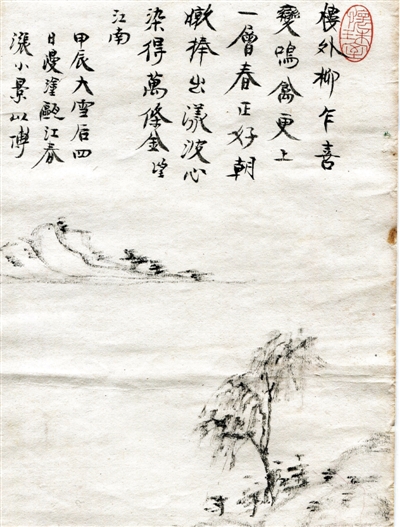 樓外柳乍喜
變鳴禽更上
一層春正好朝
暾捧出漾波心
染得萬條金望
江南
甲辰大雪后四
日漫塗甌江春
漲小景以博